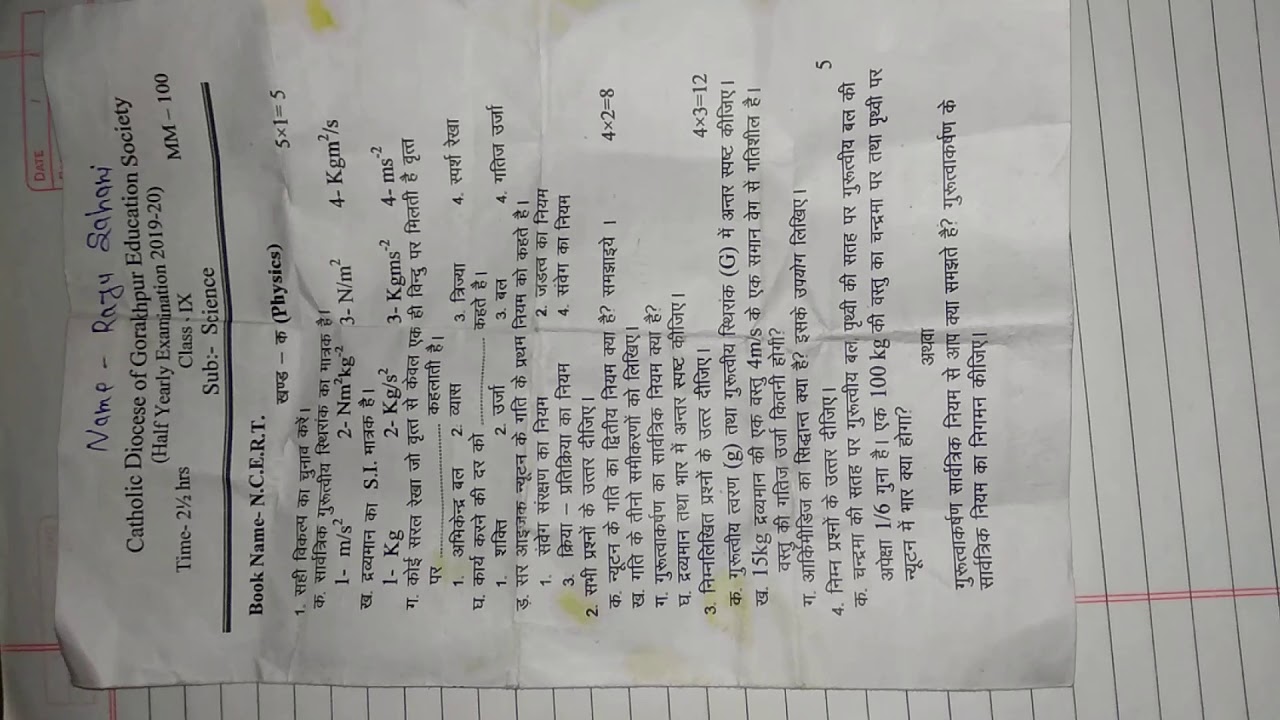 DATE
Name - Raju Sahani
Catholic Diocese of Gorakhpur Education Society
(Half Yearly Examination 2019-20)
Time- 2½ hrs Class : IX MM – 100
Sub:- Science
Book Name- N.C.E.R.T.
खण्ड – क (Physics) 5×1= 5
1. सही विकल्प का चुनाव करें।
क. सार्वत्रिक गुरूत्वीय स्थिरांक का मात्रक है।
1- m/s² 2- Nm²kg⁻² 3- N/m² 4- Kgm²/s
ख. द्रव्यमान का S.I. मात्रक है।
1- Kg 2- Kg/s² 3- Kgms⁻² 4- ms⁻²
ग. कोई सरल रेखा जो वृत्त से केवल एक ही बिन्दु पर मिलती है वृत्त
पर .................... कहलाती है।
1. अभिकेन्द्र बल 2. व्यास 3. त्रिज्या 4. स्पर्श रेखा
घ. कार्य करने की दर को .................... कहते है।
1. शक्ति 2. उर्जा 3. बल 4. गतिज उर्जा
ड़. सर आइजक न्यूटन के गति के प्रथम नियम को कहते है।
1. संवेग संरक्षण का नियम 2. जडत्व का नियम
3. क्रिया – प्रतिक्रिया का नियम 4. संवेग का नियम
2. सभी प्रश्नों के उत्तर दीजिए। 4×2=8
क. न्यूटन के गति का द्वितीय नियम क्या है? समझाइये ।
ख. गति के तीनो समीकरणों को लिखिए।
ग. गुरूत्वाकर्षण का सार्वत्रिक नियम क्या है?
घ. द्रव्यमान तथा भार में अन्तर स्पष्ट कीजिए।
3. निम्नलिखित प्रश्नों के उत्तर दीजिए। 4×3=12
क. गुरूत्वीय त्वरण (g) तथा गुरूत्वीय स्थिरांक (G) में अन्तर स्पष्ट कीजिए।
ख. 15kg द्रव्यमान की एक वस्तु 4m/s के एक समान वेग से गतिशील है।
वस्तु की गतिज उर्जा कितनी होगी?
ग. आर्किमीडिज का सिद्धान्त क्या है? इसके उपयोग लिखिए।
4. निम्न प्रश्नों के उत्तर दीजिए। 5
क. चन्द्रमा की सतह पर गुरूत्वीय बल, पृथ्वी की सतह पर गुरूत्वीय बल की
अपेक्षा 1/6 गुना है। एक 100 kg की वस्तु का चन्द्रमा पर तथा पृथ्वी पर
न्यूटन में भार क्या होगा?
अथवा
गुरूत्वाकर्षण सार्वत्रिक नियम से आप क्या समझते हैं? गुरूत्वाकर्षण के
सार्वत्रिक नियम का निगमन कीजिए।